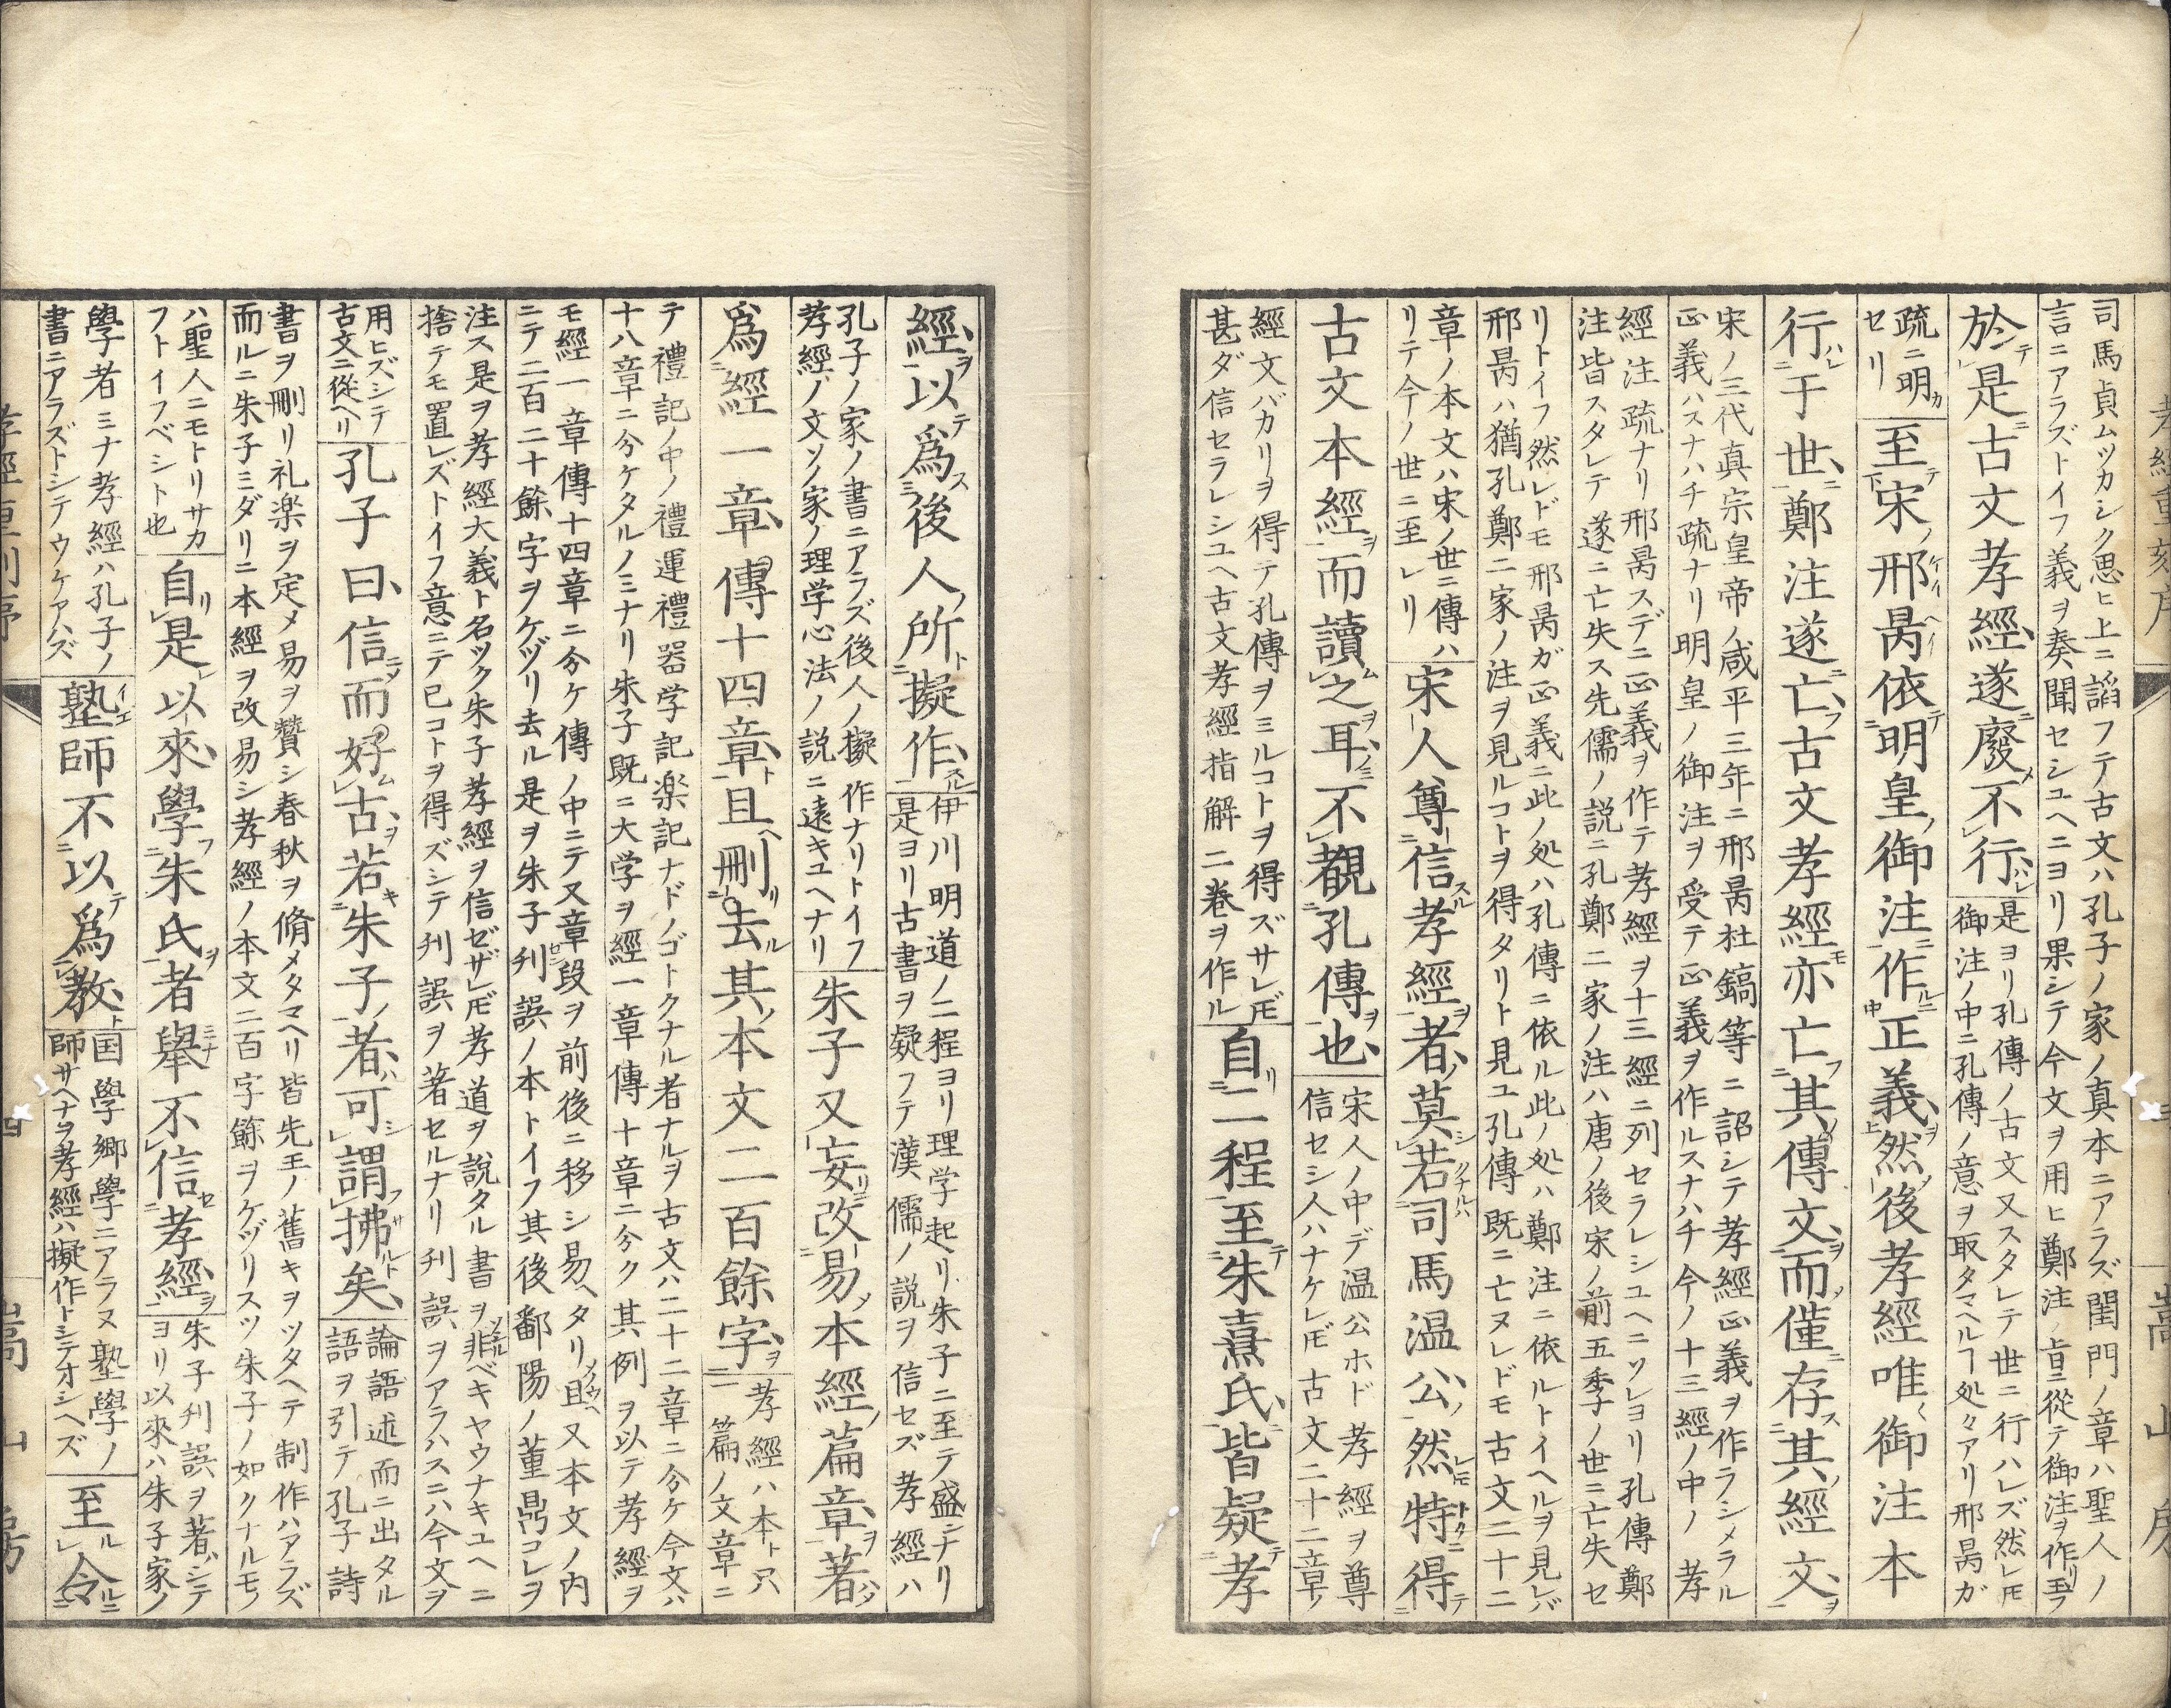 司馬貞ムツカシク思ヒ上ニ諂フテ古文ハ孔子ノ家ノ真本ニアラズ閨門ノ章ハ聖人ノ
言ニアラズトイフ義ヲ奏聞セシユヘニヨリ果シテ今文ヲ用ヒ鄭注ノ旨ニ從テ御注ヲ作リ玉フ
於テ是ニ古文孝經遂ニ廢メ不行ハレ
是ヨリ孔傳ノ古文又スタレテ世ニ行ハレズ然レ𪜈
御注ノ中ニ孔傳ノ意ヲ取タマヘルヿ処々アリ邢昺ガ
疏ニ明カ
セリ
至テ宋ノ邢昺依テ明皇ノ御注ニ作ルニ正義ヲ然後孝經唯御注本
行ハレ于世ニ鄭注遂ニ亡フ古文孝經モ亦亡フ其傳文ヲ而僅ニ存ス其ノ經文ヲ
宋ノ三代真宗皇帝ノ咸平三年ニ邢昺杜鎬等ニ詔シテ孝經正義ヲ作ラシメラル
正義ハスナハチ疏ナリ明皇ノ御注ヲ受テ正義ヲ作ルスナハチ今ノ十三經ノ中ノ孝
經注疏ナリ邢昺スデニ正義ヲ作テ孝經ヲ十三經ニ列セラレシユヘニソレヨリ孔傳鄭
注皆スタレテ遂ニ亡失ス先儒ノ説ニ孔鄭二家ノ注ハ唐ノ後宋ノ前五季ノ世ニ亡失セ
リトイフ然レドモ邢昺ガ正義ニ此ノ処ハ孔傳ニ依ル此ノ処ハ鄭注ニ依ルトイヘルヲ見レバ
邢昺ハ猶孔鄭二家ノ注ヲ見ルコトヲ得タリト見ユ孔傳既ニ亡ヌレドモ古文二十二
章ノ本文ハ宋ノ世ニ傳ハ
リテ今ノ世ニ至レリ
宋人尊信スル孝經ヲ者ノ莫シ若クナルハ司馬温公ノ然レ𪜈特トクニ得テ
古文本經ヲ而讀ム之ヲ耳ノミ不覩孔傳ヲ也
宋人ノ中デ温公ホド孝經ヲ尊
信セシ人ハナケレ𪜈古文二十二章ノ
經文バカリヲ得テ孔傳ヲミルコトヲ得ズサレ𪜈
甚ダ信セラレシユヘ古文孝經指解二巻ヲ作ル
自リ二程至テ朱熹氏ニ皆疑テ孝
經ヲ以テ爲ス後人ノ所ト擬作スル
伊川明道ノ二程ヨリ理学起リ朱子ニ至テ盛ンナリ
是ヨリ古書ヲ疑フテ漢儒ノ説ヲ信セズ孝經ハ
孔子ノ家ノ書ニアラズ後人ノ擬作ナリトイフ
孝經ノ文ソノ家ノ理学心法ノ説ニ遠キユヘナリ
朱子又妄リニ改易メ本經ノ篇章ヲ著ハシ
爲經一章傳十四章ト且ヘ刪リ去ル其ノ本文二百餘字ヲ
孝經ハ本ト只
一篇ノ文章ニ
テ禮記ノ中ノ禮運禮器学記楽記ナドノゴトクナル者ナルヲ古文ハ二十二章ニ分ケ今文ハ
十八章ニ分ケタルノミナリ朱子既ニ大学ヲ經一章傳十章ニ分ク其例ヲ以テ孝經ヲ
モ經一章傳十四章ニ分ケ傳ノ中ニテ又章段ヲ前後ニ移シ易ヘタリ且又本文ノ内
ニテ二百二十餘字ヲケヅリ去ル是ヲ朱子刊誤ノ本トイフ其後鄱陽ノ董鼎コレヲ
注ス是ヲ孝經大義ト名ツク朱子孝經ヲ信ゼザレ𪜈孝道ヲ説タル書ヲ非ベキヤウナキユヘニ
捨テモ置レズトイフ意ニテ已コトヲ得ズシテ刋誤ヲ著セルナリ刋誤ヲアラハスニハ今文ヲ
用ヒズシテ
古文ニ從ヘリ
孔子曰信而好ム古ヲ若キ朱子ノ者ハ可シ謂フ拂ルト矣
論語述而ニ出タル
語ヲ引テ孔子詩
書ヲ刪リ礼楽ヲ定メ易ヲ贊シ春秋ヲ脩メタマヘリ皆先王ノ舊キヲツタヘテ制作ハアラズ
而ルニ朱子ミダリニ本經ヲ改易シ孝經ノ本文二百字餘ヲケヅリスツ朱子ノ如クナルモノ
ハ聖人ニモトリサカ
フトイフベシト也
自リ是以來學フ朱氏ヲ者舉ミナ不信セ孝經ヲ
朱子刋誤ヲ著シテ
ヨリ以來ハ朱子家ノ
學者ミナ孝經ハ孔子ノ
書ニアラズトシテウケアハズ
塾イエ師不以テ爲教ト
国學郷學ニアラヌ塾學ノ
師サヘナヲ孝經ハ擬作トシテオシヘズ
至ル令ルニ
孝經重刻序
三
嵩山房
孝經重刻序
四
嵩山房